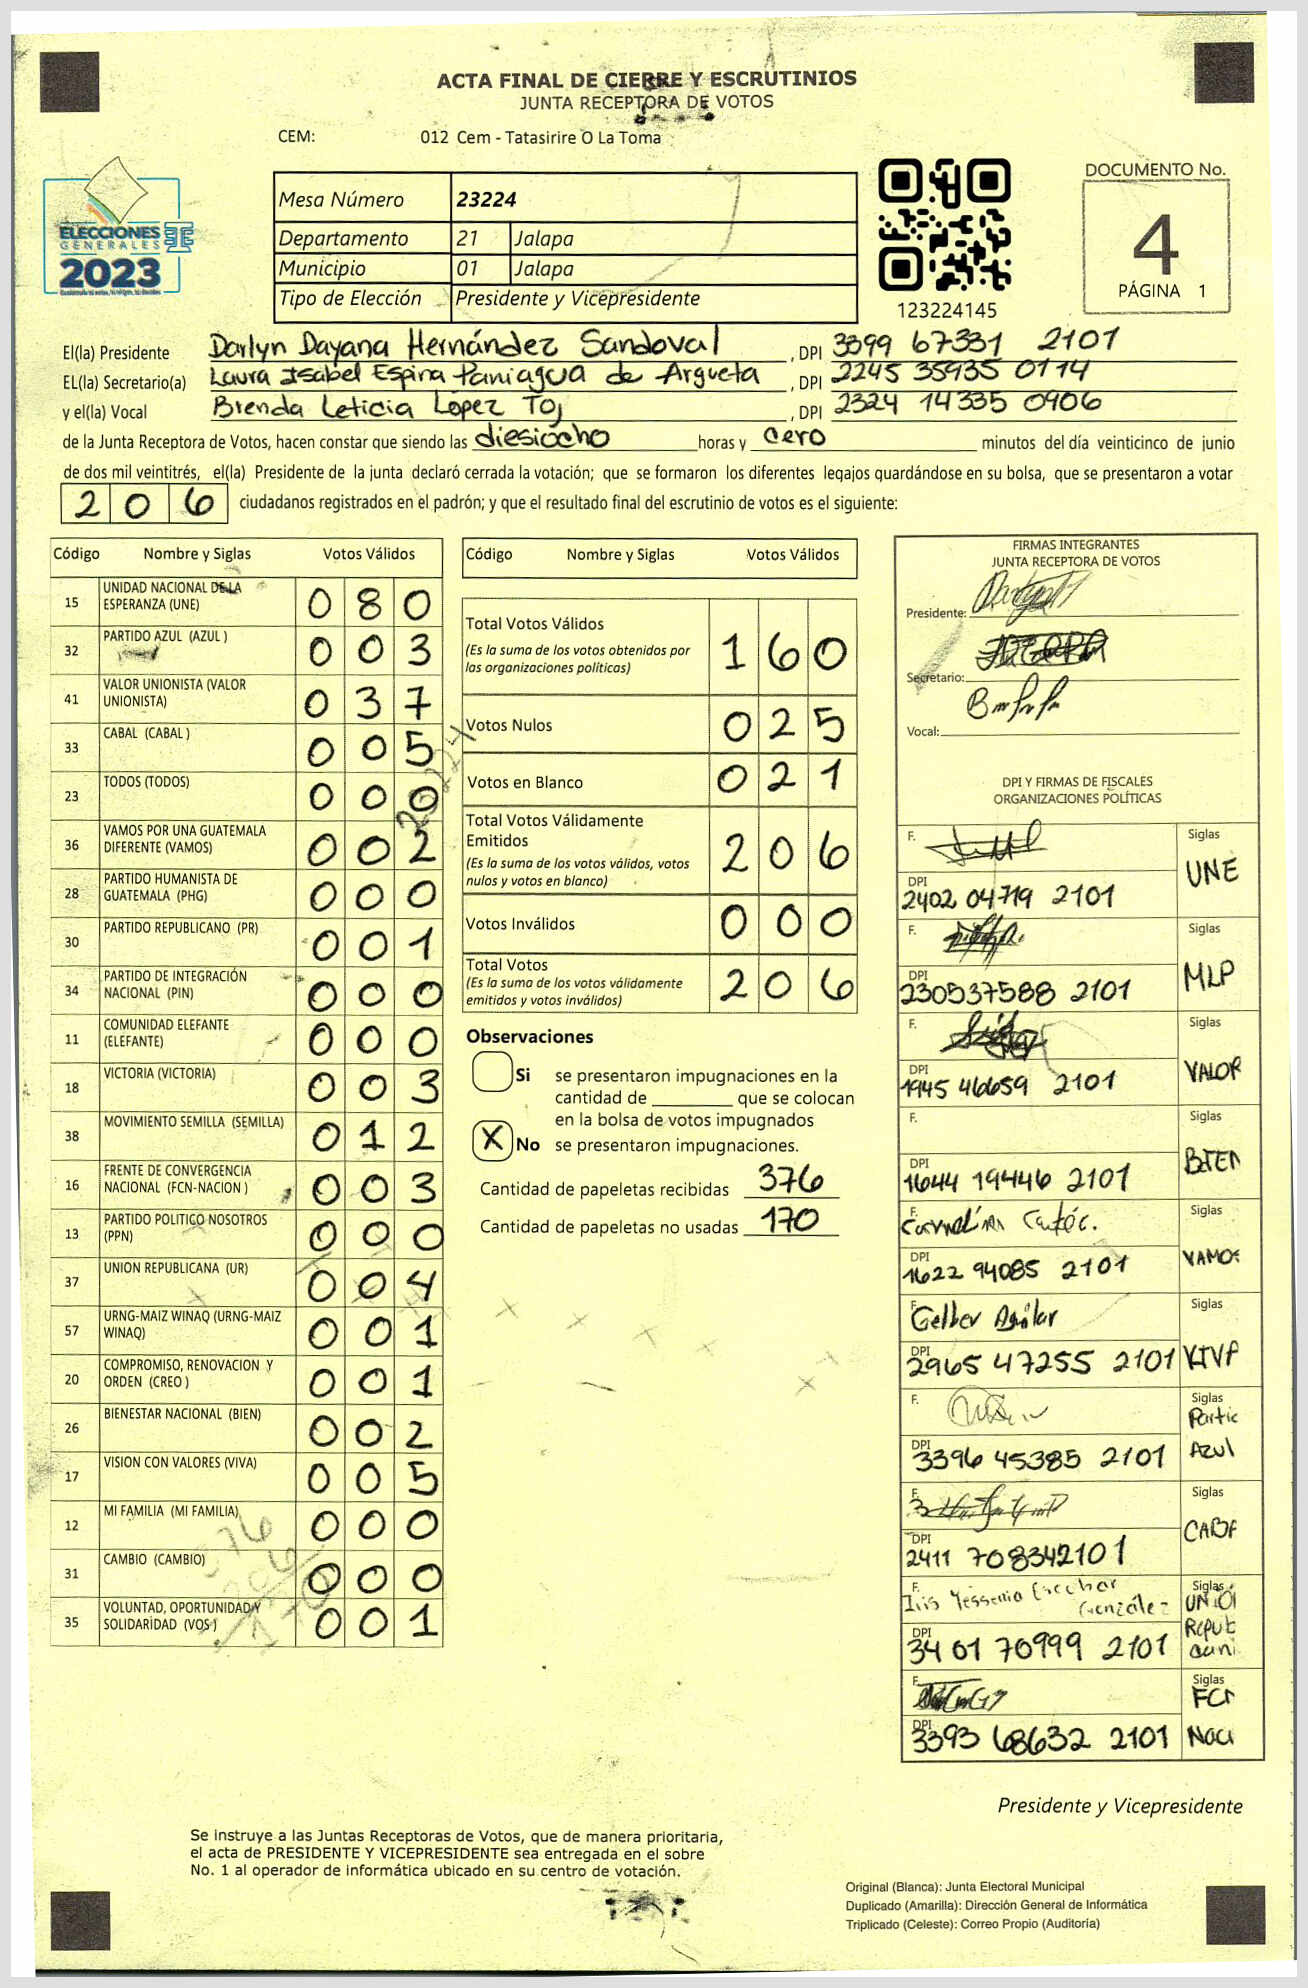 ACTA FINAL DE CIERRE Y ESCRUTINIOS
JUNTA RECEPTORA DE VOTOS
CEM: 012 Cem - Tatasirire O La Toma
ELECCIONES
GENERALES
2023
Mesa Número 23224
Departamento 21 Jalapa
Municipio 01 Jalapa
Tipo de Elección Presidente y Vicepresidente
123224145
DOCUMENTO No.
4
PÁGINA 1
El(la) Presidente Darlyn Dayana Hernández Sandoval , DPI 3399 67331 2101
EL(la) Secretario(a) Laura Isabel Espina Paniagua de Argueta , DPI 2245 35935 0114
y el(la) Vocal Brenda Leticia López Toj , DPI 2324 14335 0906
de la Junta Receptora de Votos, hacen constar que siendo las diesiocho horas y cero minutos del día veinticinco de junio
de dos mil veintitrés, el(la) Presidente de la junta declaró cerrada la votación; que se formaron los diferentes legajos guardándose en su bolsa, que se presentaron a votar
206 ciudadanos registrados en el padrón; y que el resultado final del escrutinio de votos es el siguiente:
Código Nombre y Siglas Votos Válidos
15 UNIDAD NACIONAL DE LA
ESPERANZA (UNE) 080
32 PARTIDO AZUL (AZUL ) 003
41 VALOR UNIONISTA (VALOR
UNIONISTA) 037
33 CABAL (CABAL ) 005
23 TODOS (TODOS) 000
36 VAMOS POR UNA GUATEMALA
DIFERENTE (VAMOS) 002
28 PARTIDO HUMANISTA DE
GUATEMALA (PHG) 000
30 PARTIDO REPUBLICANO (PR) 001
34 PARTIDO DE INTEGRACIÓN
NACIONAL (PIN) 000
11 COMUNIDAD ELEFANTE
(ELEFANTE) 000
18 VICTORIA (VICTORIA) 003
38 MOVIMIENTO SEMILLA (SEMILLA) 012
16 FRENTE DE CONVERGENCIA
NACIONAL (FCN-NACION ) 003
13 PARTIDO POLITICO NOSOTROS
(PPN) 000
37 UNION REPUBLICANA (UR) 004
57 URNG-MAIZ WINAQ (URNG-MAIZ
WINAQ) 001
20 COMPROMISO, RENOVACION Y
ORDEN (CREO ) 001
26 BIENESTAR NACIONAL (BIEN) 002
17 VISION CON VALORES (VIVA) 005
12 MI FAMILIA (MI FAMILIA) 000
31 CAMBIO (CAMBIO) 000
35 VOLUNTAD, OPORTUNIDAD Y
SOLIDARIDAD (VOS ) 001
Código Nombre y Siglas Votos Válidos
Total Votos Válidos
(Es la suma de los votos obtenidos por
las organizaciones políticas) 160
Votos Nulos 025
Votos en Blanco 021
Total Votos Válidamente
Emitidos
(Es la suma de los votos válidos, votos
nulos y votos en blanco) 206
Votos Inválidos 000
Total Votos
(Es la suma de los votos válidamente
emitidos y votos inválidos) 206
Observaciones
Si se presentaron impugnaciones en la
cantidad de ________ que se colocan
en la bolsa de votos impugnados
X No se presentaron impugnaciones.
Cantidad de papeletas recibidas 376
Cantidad de papeletas no usadas 170
FIRMAS INTEGRANTES
JUNTA RECEPTORA DE VOTOS
Presidente:
Secretario:
Vocal:
DPI Y FIRMAS DE FISCALES
ORGANIZACIONES POLÍTICAS
F. Siglas
UNE
DPI
2402 04719 2101
F. Siglas
MLP
DPI
230537588 2101
F. Siglas
VALOR
DPI
1945 46659 2101
F. Siglas
BIEN
DPI
1644 19446 2101
F. Siglas
VAMOS
DPI
1622 94085 2101
F. Gelber Aguilar Siglas
DPI
2965 47255 2101
F. Siglas
Partic
Azul
DPI
3396 45385 2101
F. Siglas
DPI
2411 708342101
F. Iris Yessenia Escobar
González
Siglas
DPI
3401 70999 2101
F. Siglas
DPI
3393 68632 2101
Presidente y Vicepresidente
Se instruye a las Juntas Receptoras de Votos, que de manera prioritaria,
el acta de PRESIDENTE Y VICEPRESIDENTE sea entregada en el sobre
No. 1 al operador de informática ubicado en su centro de votación.
Original (Blanca): Junta Electoral Municipal
Duplicado (Amarilla): Dirección General de Informática
Triplicado (Celeste): Correo Propio (Auditoría)